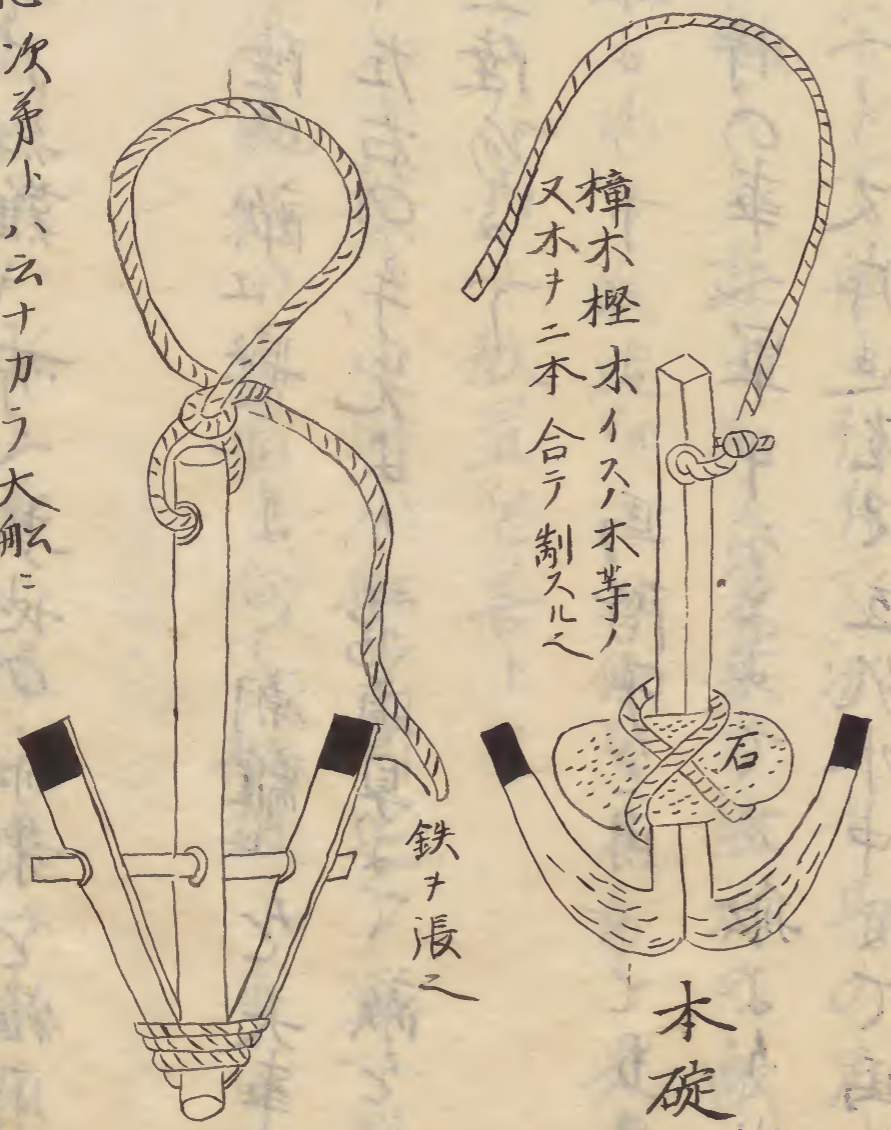 樟木樫木イスノ木等ノ
又木ヲ二本合テ制スル也
石
本碇
鉄ヲ張ル也
次第トハ云ナカラ大船ニ